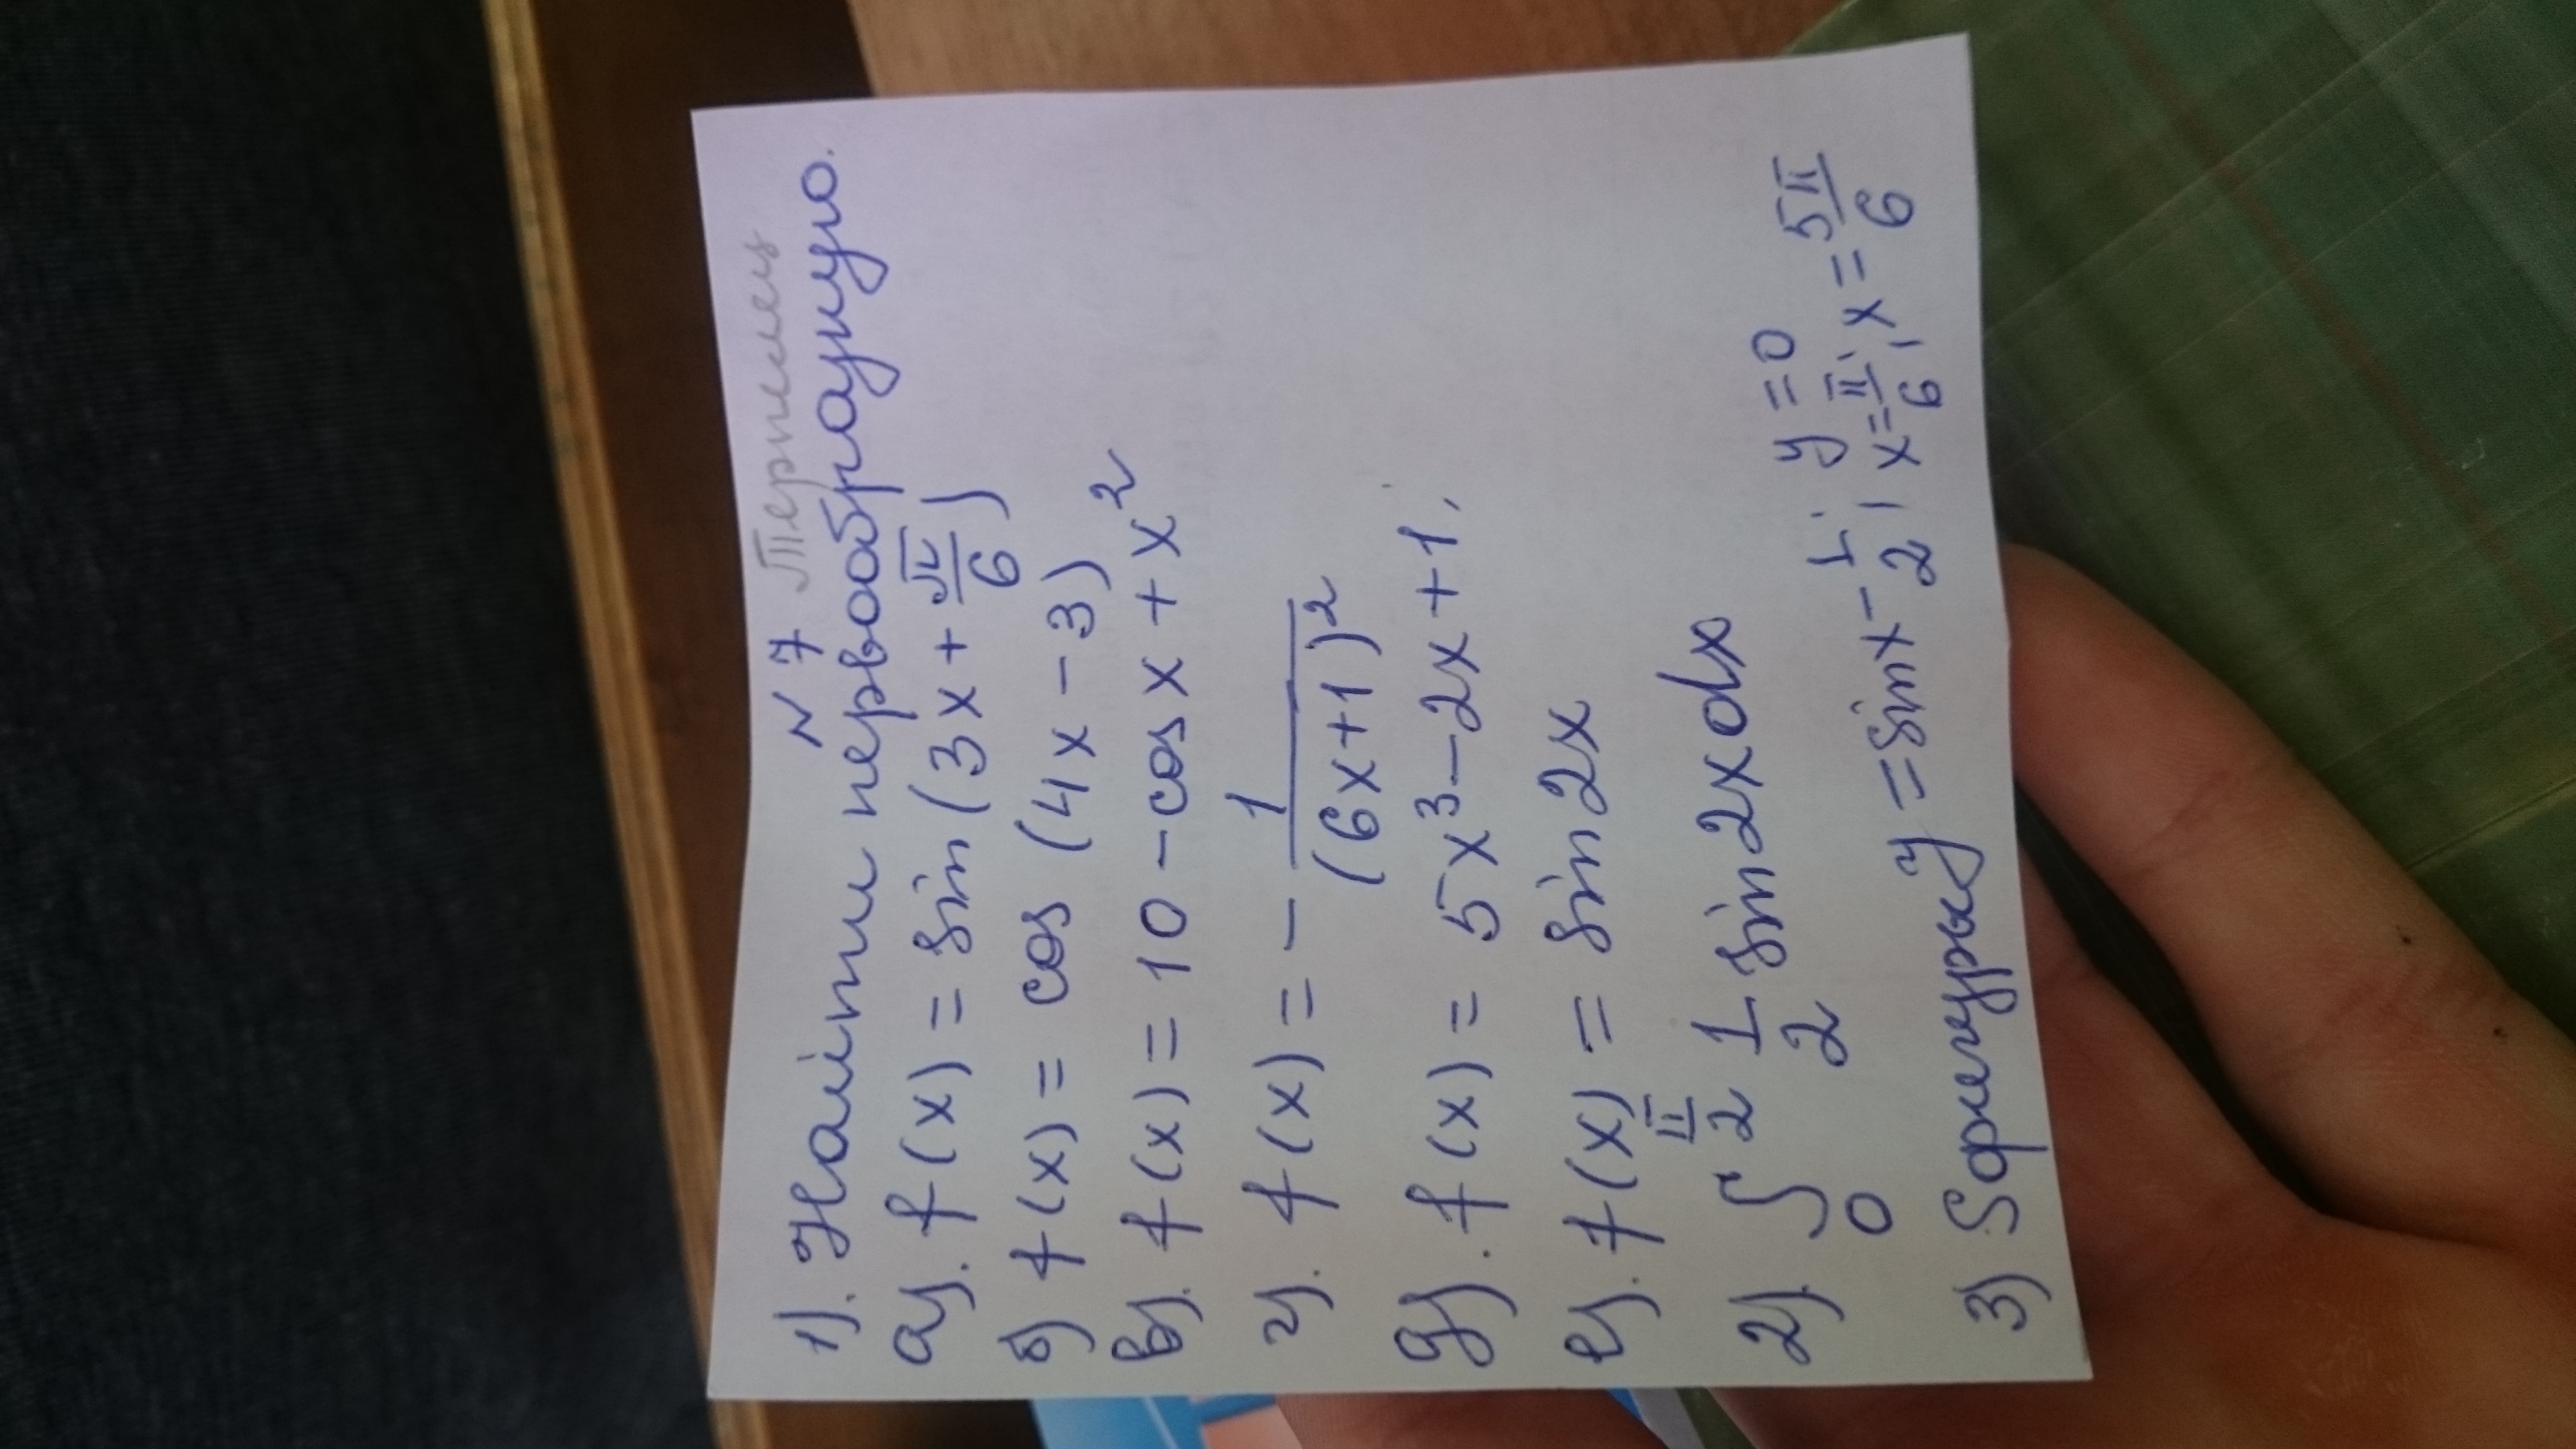 №7 Терпишь
1). Найти первообразную.
а). f(x) = sin(3x + π/6)
б) f(x) = cos (4x - 3)
в). f(x) = 10 - cos x + x²
г). f(x) = - 1/(6x+1)²
д). f(x) = 5x³ - 2x + 1,
е). f(x) = sin 2x
2). ∫₀^(π/2) 1/2 sin 2x dx
3) Sфигуры y = sin x - 1/2; y = 0, x = π/6; x = 5π/6